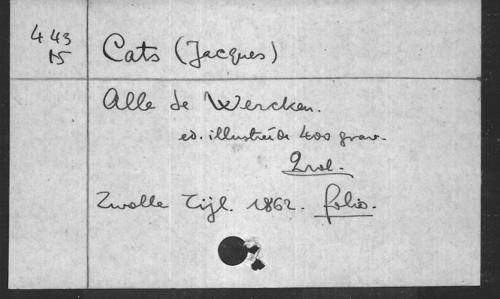 443
N5
Cats (Jacques)
Alle de Wercken.
ed. illustrée de 400 grav.
2 vol.
Zwolle Tijl. 1862. folio.